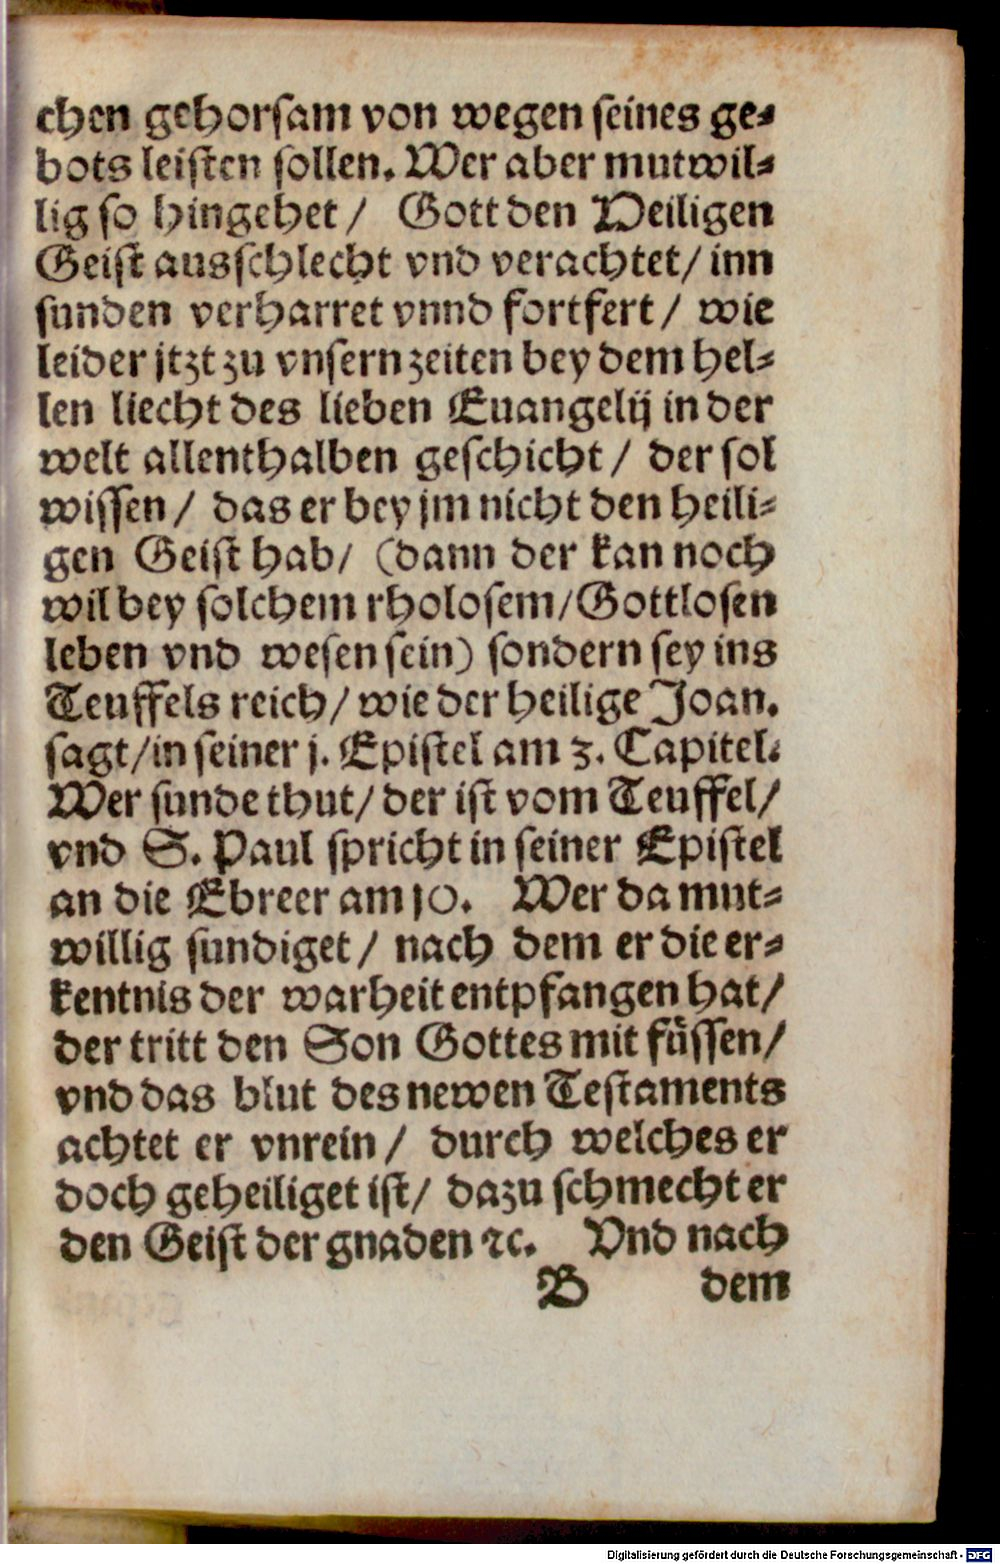 chen gehorsam von wegen seines ge⸗
bots leisten sollen. Wer aber mutwil⸗
lig so hingehet / Gott den Heiligen
Geist ausschlecht vnd verachtet / inn
sunden verharret vnnd fortfert / wie
leider jtzt zu vnsern zeiten bey dem hel⸗
len liecht des lieben Euangelij in der
welt allenthalben geschicht / der sol
wissen / das er bey jm nicht den heili⸗
gen Geist hab / (dann der kan noch
wil bey solchem rholosem / Gottlosen
leben vnd wesen sein) sondern sey ins
Teuffels reich / wie der heilige Joan.
sagt / in seiner j. Epistel am 3. Capitel.
Wer sunde thut / der ist vom Teuffel /
vnd S. Paul spricht in seiner Epistel
an die Ebreer am 10. Wer da mut⸗
willig sundiget / nach dem er die er⸗
kentnis der warheit entpfangen hat /
der tritt den Son Gottes mit füssen /
vnd das blut des newen Testaments
achtet er vnrein / durch welches er
doch geheiliget ist / dazu schmecht er
den Geist der gnaden ꝛc. Vnd nach
B dem
Digitalisierung gefördert durch die Deutsche Forschungsgemeinschaft - DFG